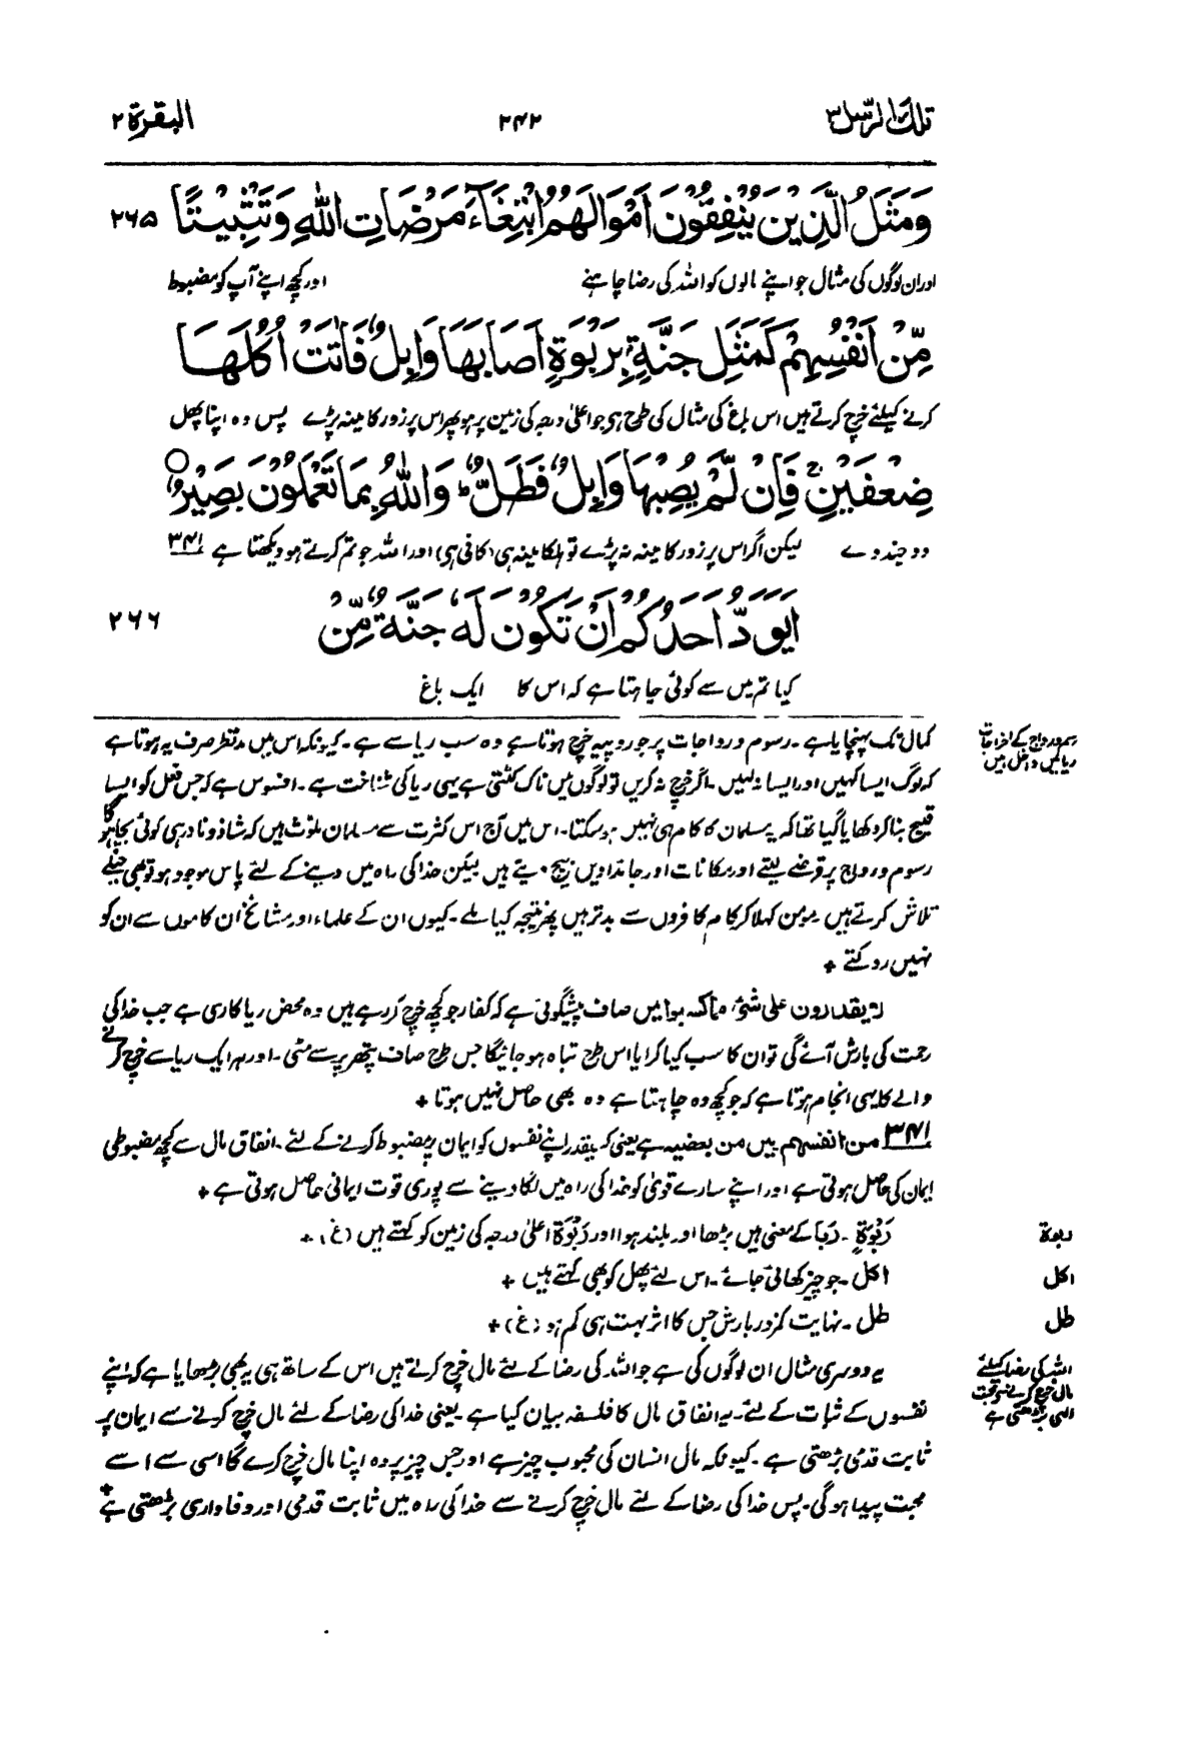 تلك الرسل ٣
٢٤٢
البقرة ٢
وَمَثَلُ الَّذِيْنَ يُنْفِقُوْنَ اَمْوَالَهُمُ ابْتِغَآءَ مَرْضَاتِ اللّٰهِ وَتَثْبِيْتًا ٢٦٥
اور ان لوگوں کی مثال جو اپنے مالوں کو اللہ کی رضا چاہنے اور کچھ اپنے آپ کو مضبوط
مِّنْ اَنْفُسِهِمْ كَمَثَلِ جَنَّةٍۭ بِرَبْوَةٍ اَصَابَهَا وَابِلٌ فَاٰتَتْ اُكُلَهَا
کرنے کیلئے خرچ کرتے ہیں اس باغ کی مثال کی طرح ہی جو اعلیٰ درجہ کی زمین پر ہو پھر اس پر زور کا مینہ پڑے پس وہ اپنا پھل
ضِعْفَيْنِ ۚ فَاِنْ لَّمْ يُصِبْهَا وَابِلٌ فَطَلٌّ ؕ وَاللّٰهُ بِمَا تَعْمَلُوْنَ بَصِيْرٌ ○
دو چند دے لیکن اگر اس پر زور کا مینہ نہ پڑے تو ہلکا مینہ ہی (کافی ہی) اور اللہ جو تم کرتے ہو دیکھتا ہے ٣٤١
اَيَوَدُّ اَحَدُكُمْ اَنْ تَكُوْنَ لَهٗ جَنَّةٌ مِّنْ ٢٦٦
کیا تم میں سے کوئی چاہتا ہے کہ اس کا ایک باغ
رسم ورواج کے اخراجات
ریا میں داخل ہیں
کمال تک پہنچایا ہے۔ رسوم و رواجات پر جو روپیہ خرچ ہوتا ہے وہ سب ریا سے ہے۔ کیونکہ اس میں مد نظر صرف یہ ہوتا ہے
کہ لوگ ایسا کہیں اور ایسا نہ کہیں۔ اگر خرچ نہ کریں تو لوگوں میں ناک کٹتی ہے یہی ریا کی شناخت ہے۔ افسوس ہے کہ جس فعل کو ایسا
قبیح بنا کر دکھایا گیا تھا کہ یہ مسلمان کا کام ہی نہیں ہو سکتا۔ اس میں آج اس کثرت سے مسلمان ملوث ہیں کہ شاذ و نادر ہی کوئی بچا ہو گا
رسوم و رواج پر قرضے لیتے اور مکانات اور جائدادیں بیچ دیتے ہیں لیکن خدا کی راہ میں دینے کے لئے پاس موجود ہو تو بھی حیلے
تلاش کرتے ہیں مومن کہلا کر کام کافروں سے بدتر ہیں پھر نتیجہ کیا ملے۔ کیوں ان کے علماء اور مشائخ ان کاموں سے ان کو
نہیں روکتے +
لا یقدرون علی شیء مما کسبوا میں صاف پیشگوئی ہے کہ کفار جو کچھ خرچ کر رہے ہیں وہ محض ریاکاری ہے جب خدا کی
رحمت کی بارش آئے گی تو ان کا سب کیا کرایا اس طرح تباہ ہو جائیگا جس طرح صاف پتھر پر سے مٹی۔ اور ہر ایک ریا سے خرچ کرنے
والے کا یہی انجام ہوتا ہے کہ جو کچھ وہ چاہتا ہے وہ بھی حاصل نہیں ہوتا +
٣٤١ من انفسهم میں من بعضیہ ہے یعنی کسیقدر اپنے نفسوں کو ایمان پر مضبوط کرنے کے لئے۔ انفاق مال سے کچھ مضبوطی
ایمان کی حاصل ہوتی ہے اور اپنے سارے قویٰ کو خدا کی راہ میں لگا دینے سے پوری قوت ایمانی حاصل ہوتی ہے +
ربوۃ
رَبْوَةٍ۔ رَبَا کے معنی ہیں بڑھا اور بلند ہوا اور رَبْوَۃ اعلیٰ درجہ کی زمین کو کہتے ہیں (غ) +
اکل
اکل۔ جو چیز کھائی جائے۔ اس لئے پھل کو بھی کہتے ہیں +
طل
طل۔ نہایت کمزور بارش جس کا اثر بہت ہی کم ہو (غ) +
اللہ کی رضا کیلئے
مال خرچ کرنے سے محبت
الٰہی بڑھتی ہے
یہ دوسری مثال ان لوگوں کی ہے جو اللہ کی رضا کے لئے مال خرچ کرتے ہیں اس کے ساتھ ہی یہ بھی بڑھایا ہے کہ اپنے
نفسوں کے ثبات کے لئے۔ یہ انفاق مال کا فلسفہ بیان کیا ہے یعنی خدا کی رضا کے لئے مال خرچ کرنے سے ایمان پر
ثابت قدمی بڑھتی ہے۔ کیونکہ مال انسان کی محبوب چیز ہے اور جس چیز پر وہ اپنا مال خرچ کرے گا اسی سے اسے
محبت پیدا ہو گی۔ پس خدا کی رضا کے لئے مال خرچ کرنے سے خدا کی راہ میں ثابت قدمی اور وفاداری بڑھتی ہے +